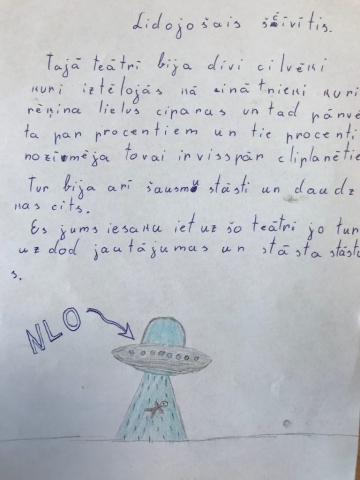 Lidojošais šķīvītis.
Tajā teātrī bija divi cilvēki
kuri iztēlojās kā zinātnieki kuri
rēķina lielus ciparas un tad pārvē
ta par procentiem un tie procenti
nozīmēja to vai ir visspār cliplanētie
Tur bija arī šausmu stāsti un daudz
kas cits.
Es jums iesaku iet uz šo teātri jo tur
uzdod jautājumas un stāsta stāstu
s.
NLO